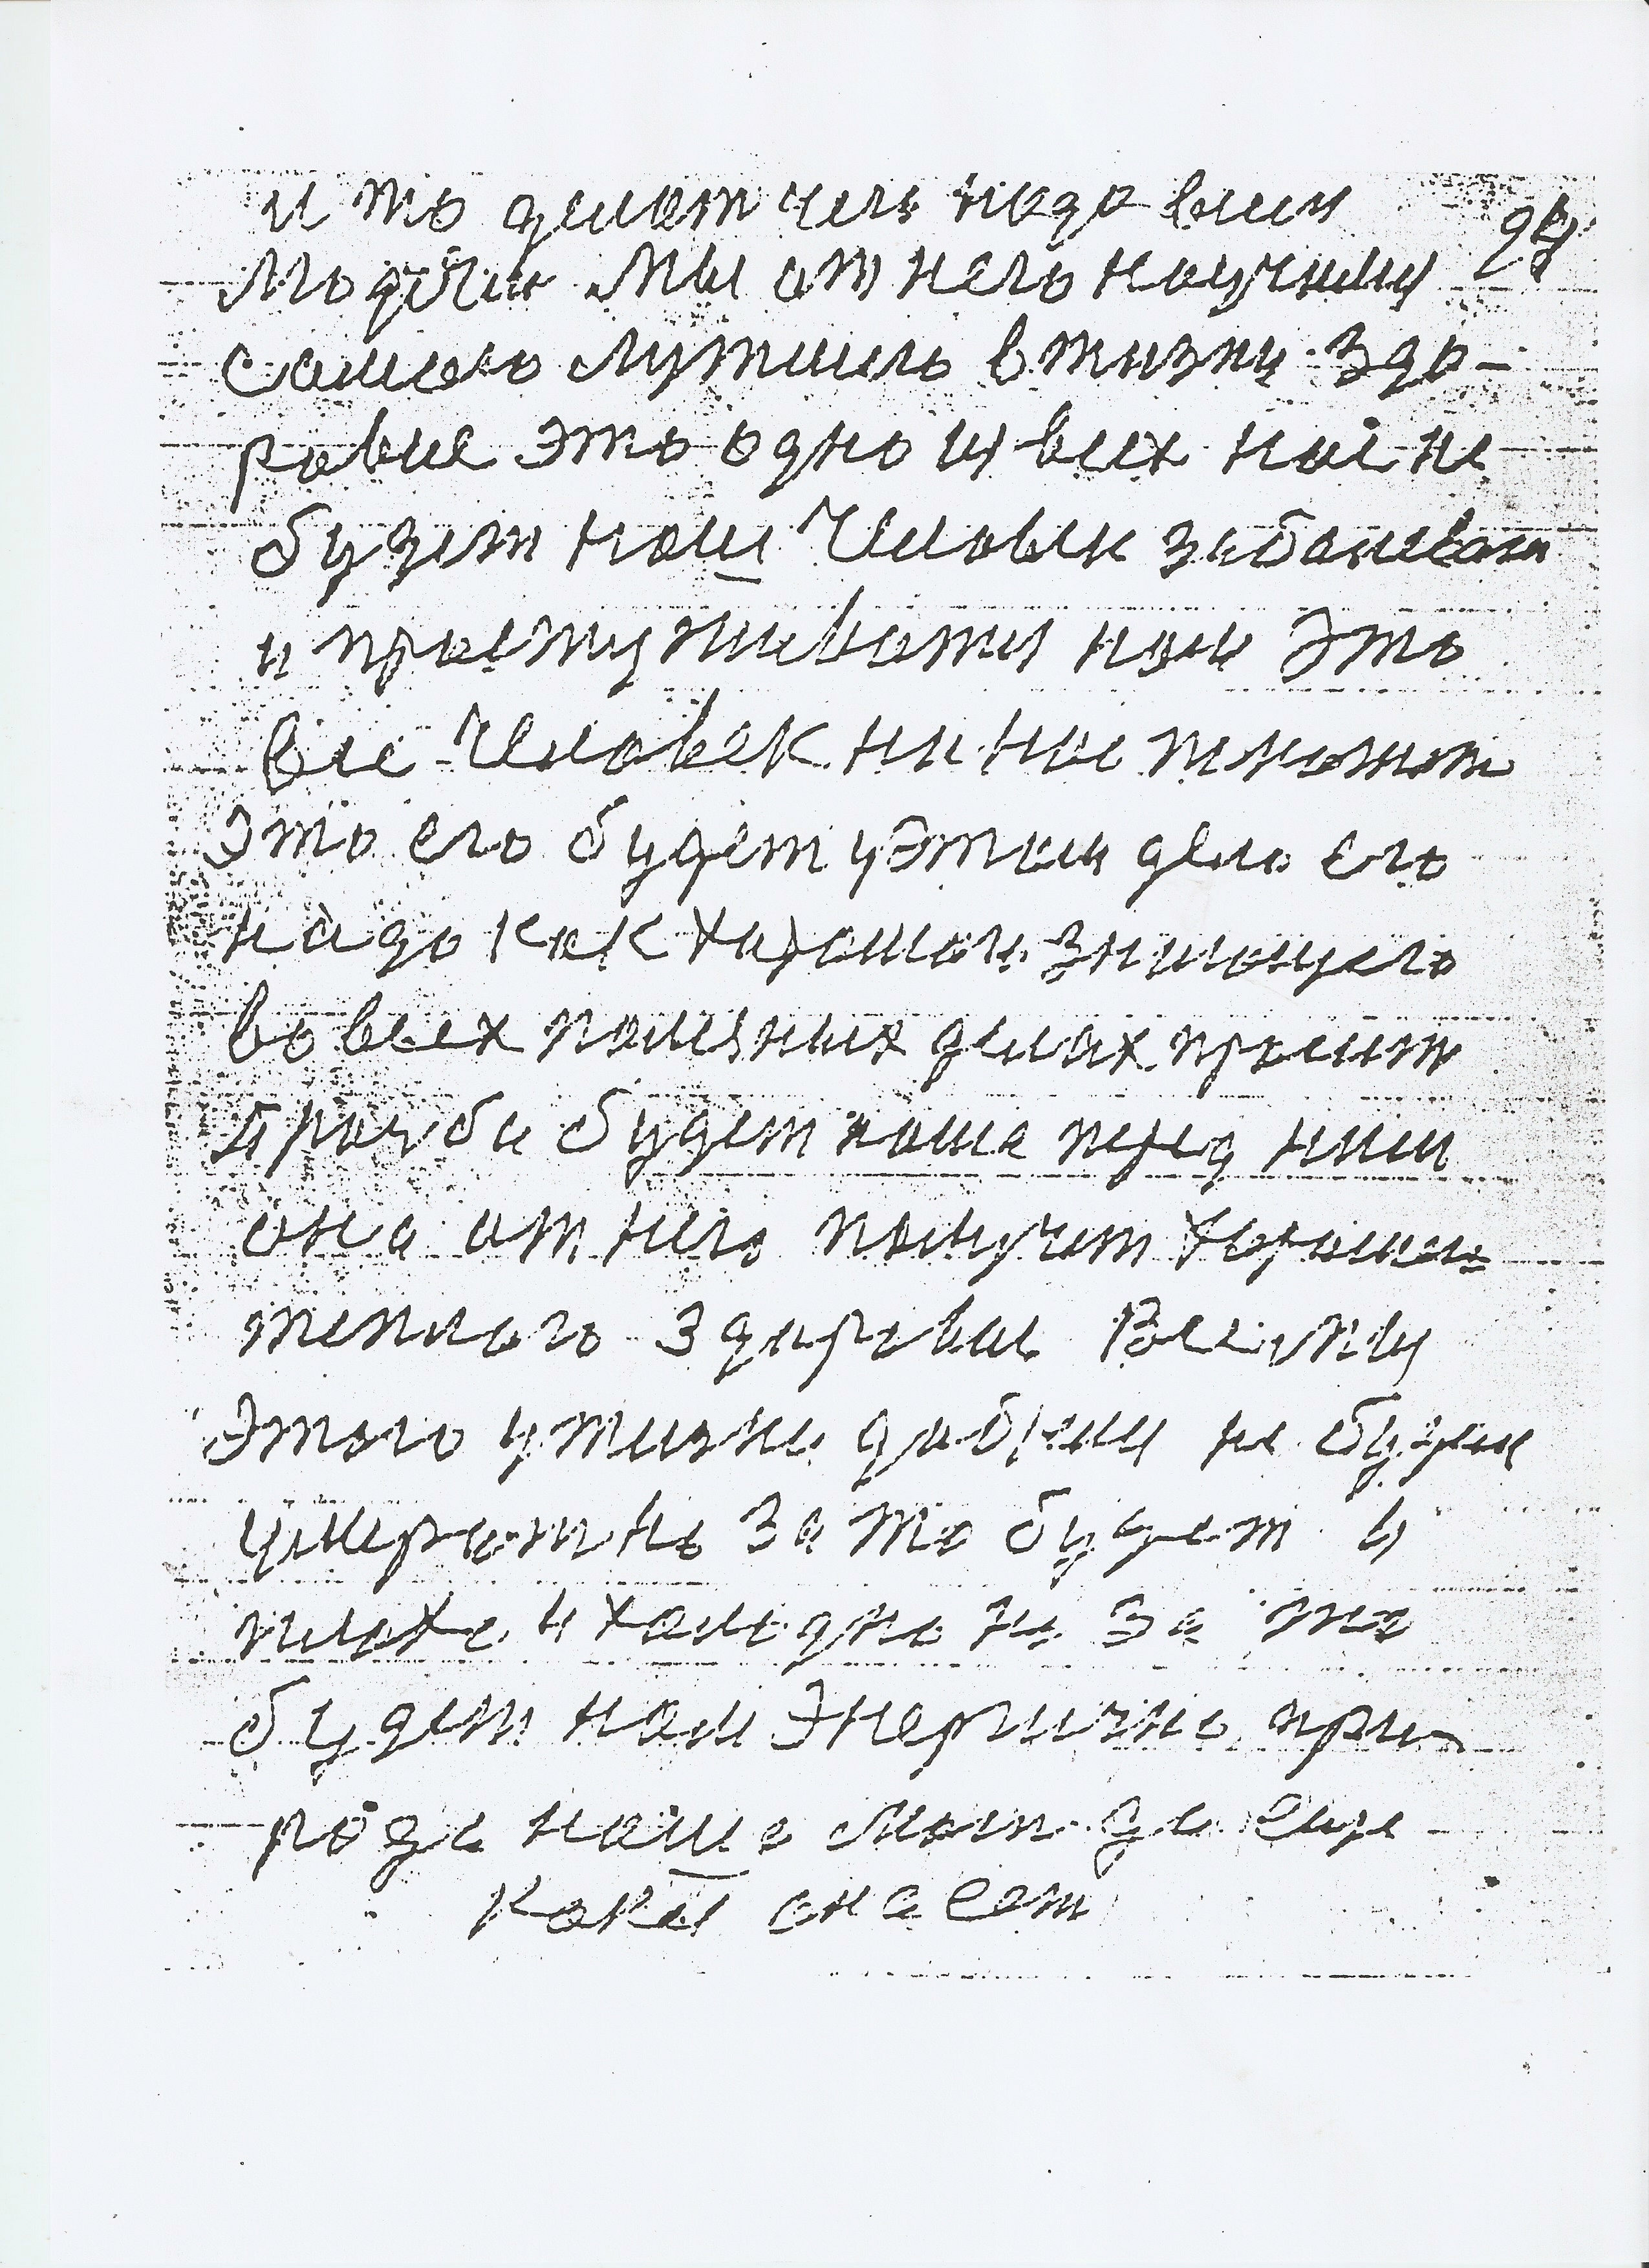 и то делает чего надо всим
Людям мы от него научимся
самого лутшего в жизни здо-
ровие это одно из всех нас не
будет наш Человек заболеват
и простуживатся нам это
все Человек ни нас тронет
Это его будет у этим дело его
надо как харошого знающего
во всех полезных делах просит
прозба будет наша перед ним
она от него получит харошего
теплого здаровие
Этого у жизни добемся не будем
умерат но за то будет и
плоха и холодно ни за что
будет нам Энергично при-
рода наша
какая она ест